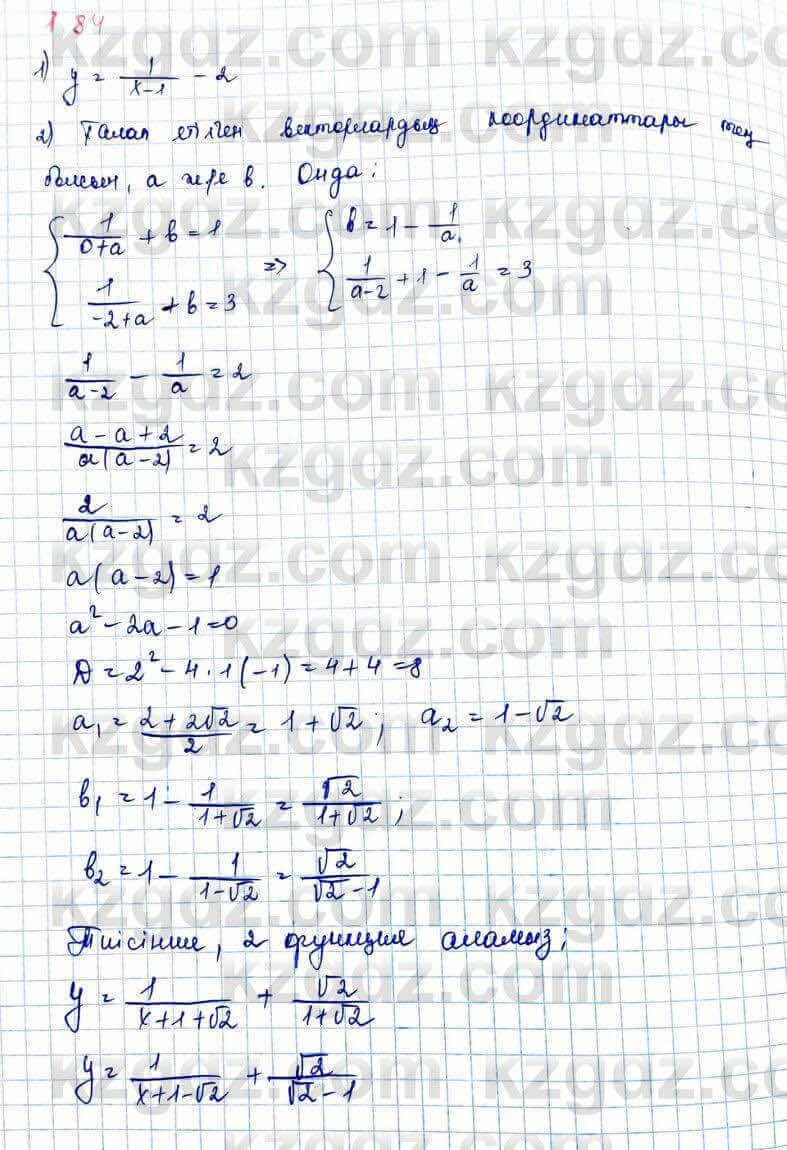 1 84
1) y = 1/(x-1) - 2
2) Талап етілген векторлардың координаттары тең
болсын, a және b. Онда:
{ 1/(0+a) + b = 1 => { b = 1 - 1/a,
{ 1/(-2+a) + b = 3 { 1/(a-2) + 1 - 1/a = 3
1/(a-2) - 1/a = 2
(a-a+2)/(a(a-2)) = 2
2/(a(a-2)) = 2
a(a-2) = 1
a² - 2a - 1 = 0
D = 2² - 4·1(-1) = 4 + 4 = 8
a₁ = (2+2√2)/2 = 1+√2; a₂ = 1-√2
b₁ = 1 - 1/(1+√2) = √2/(1+√2);
b₂ = 1 - 1/(1-√2) = √2/(√2-1)
Тиісінше, 2 функция аламыз;
y = 1/(x+1+√2) + √2/(1+√2)
y = 1/(x+1-√2) + √2/(√2-1)
kzgdz.com